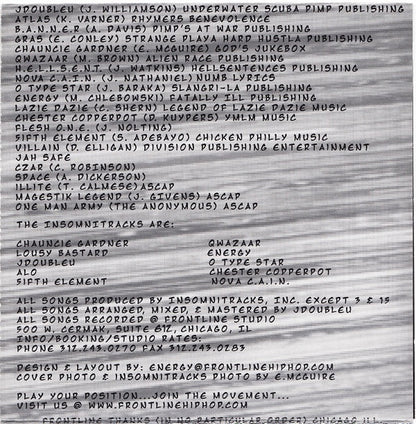 JDOUBLEU (J. WILLIAMSON) UNDERWATER SCUBA PIMP PUBLISHING
ATLAS (K. VARNER) RHYMERS BENEVOLENCE
B.A.N.N.E.R (A. DAVIS) PIMP'S AT WAR PUBLISHING
GRAS (E. CONLEY) STRANGE PLAYA HARD HUSTLA PUBLISHING
CHAUNCIE GARDNER (E. MCGUIRE) GOD'S JUKEBOX
QWAZAAR (M. BROWN) ALIEN RACE PUBLISHING
H.E.L.L.S.E.N.T. (J. WATKINS) HELLSENTENCES PUBLISHING
NOVA C.A.I.N. (C. NATHANIEL) NUMB LYRICS
O TYPE STAR (J. BARAKA) SLANGRI-LA PUBLISHING
ENERGY (M. CHLEBOWSKI) FATALLY ILL PUBLISHING
LAZIE DAZIE (C. SHERN) LEGEND OF LAZIE DAZIE MUSIC
CHESTER COPPERPOT (D. KUYPERS) YMLM MUSIC
FLESH O.N.E. (J. NOLTING)
5IFTH ELEMENT (S. ADEBAYO) CHICKEN PHILLY MUSIC
VILLAIN (D. ELLIGAN) DIVISION PUBLISHING ENTERTAINMENT
JAH SAFE
CZAR (C. ROBINSON)
SPACE (A. DICKERSON)
ILLITE (T. CALMESE) ASCAP
MAGESTIK LEGEND (J. GIVENS) ASCAP
ONE MAN ARMY (THE ANONYMOUS) ASCAP
THE INSOMNITRACKS ARE:
CHAUNCIE GARDNER QWAZAAR
LOUSY BASTARD ENERGY
JDOUBLEU O TYPE STAR
ALO CHESTER COPPERPOT
5IFTH ELEMENT NOVA C.A.I.N.
ALL SONGS PRODUCED BY INSOMNITRACKS, INC. EXCEPT 3 & 15
ALL SONGS ARRANGED, MIXED, & MASTERED BY JDOUBLEU
ALL SONGS RECORDED @ FRONTLINE STUDIO
500 W. CERMAK, SUITE 612, CHICAGO, IL
INFO/BOOKING/STUDIO RATES:
PHONE 312.243.0270 FAX 312.243.0283
DESIGN & LAYOUT BY: ENERGY@FRONTLINEHIPHOP.COM
COVER PHOTO & INSOMNITRACKS PHOTO BY E.MCGUIRE
PLAY YOUR POSITION...JOIN THE MOVEMENT...
VISIT US @ WWW.FRONTLINEHIPHOP.COM
FRONTLINE THANKS (IN NO PARTICULAR ORDER) CHICAGO ILL